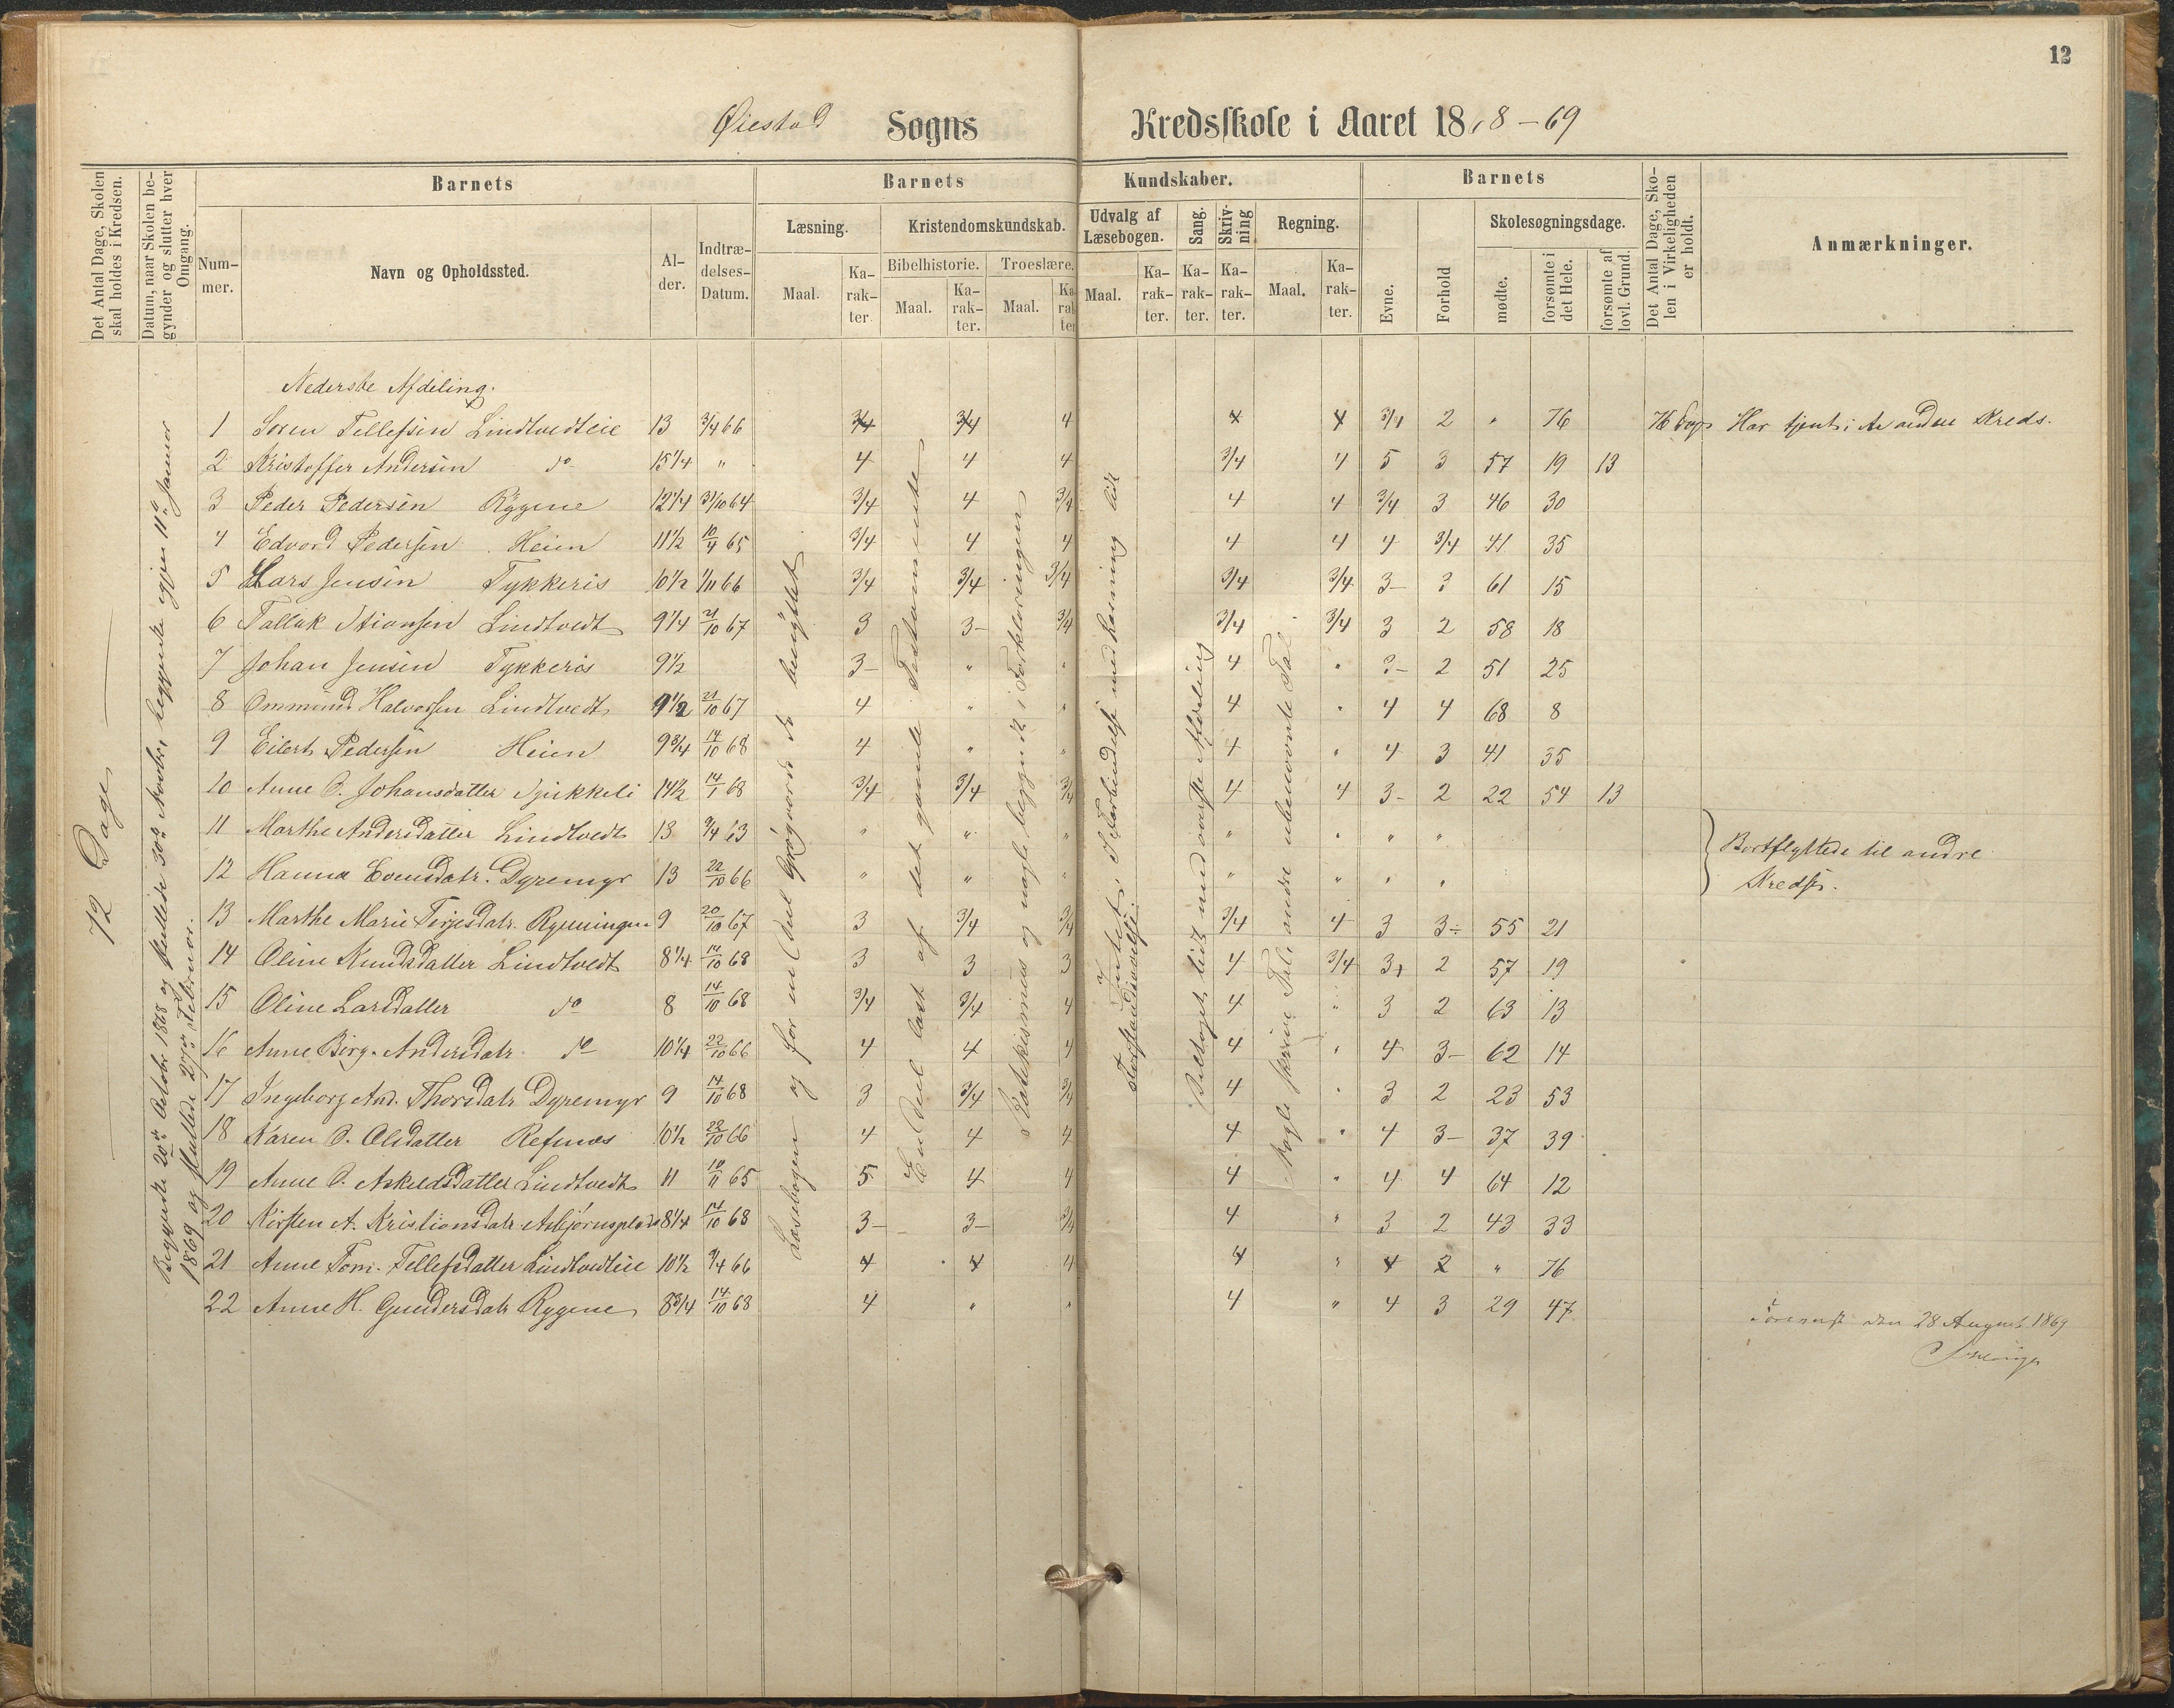 12
Øiestad Sogns Kredsskole i Aaret 1868-69
Det Antal Dage, Skolen skal holdes i Kredsen.
Datum, naar Skolen begynder og slutter hver Omgang.
Barnets
Num-mer.
Navn og Opholdssted.
Al-der.
Indtræ-delses-Datum.
Barnets Kundskaber.
Læsning.
Maal.
Ka-rak-ter
Kristendomskundskab.
Bibelhistorie.
Maal.
Ka-rak-ter.
Troeslære.
Maal.
Ka-rak-ter
Udvalg af Læsebogen.
Maal.
Ka-rak-ter.
Sang.
Ka-rak-ter.
Skriv-ning
Ka-rak-ter.
Regning.
Maal.
Ka-rak-ter.
Barnets
Evne.
Forhold
Skolesøgningsdage.
mødte.
forsømte i det Hele.
forsømte af lovl. Grund.
Det Antal Dage, Sko-len i Virkeligheden er holdt.
Anmærkninger.
72 Dage
Begyndte 20de October 1868 og sluttede 30te Novbr, begyndte igjen 11te Januar
1869 og sluttede 27de Februar.
Læsebogen og for en Deel Grøgaards do benyttet
En Deel læst af det gamle Testamente
Katekismus og nogle begyndt i Forklaringen
Intet i Forbindelse med Læsning lidt
Forstandsøvelse.
Deeltaget lidt med øverste Afdeling
Nogle skrive Tal, andre ubenævnte Tal
Nederste Afdeling.
1 Søren Tellefsen Lindtvedteie 13 3/4 66 3/4 3/4 4 4 4 3/4 2 " 76 76 Dage Har tjent i en anden Kreds.
2 Kristoffer Andersen do 15 1/4 " 4 4 4 3/4 4 5 3 57 19 13
3 Peder Pedersen Rygene 12 1/4 31/10 64 3/4 4 3/4 4 4 3/4 3 46 30
4 Edvard Pedersen Heien 11 1/2 10/4 65 3/4 4 4 4 4 4 3/4 41 35
5 Lars Jensen Tykkeris 10 1/2 1/11 66 3/4 3/4 3/4 3/4 3/4 3- 3 61 15
6 Tallak Stiansen Lindtvedt 9 1/4 21/10 67 3 3- 3/4 3/4 3/4 3 2 58 18
7 Johan Jensen Tykkeris 9 1/2 3- " " 4 " 3- 2 51 25
8 Ommund Halvorsen Lindtvedt 9 1/2 21/10 67 4 " " 4 " 4 4 68 8
9 Eilert Pedersen Heien 9 3/4 14/10 68 4 " " 4 " 4 3 41 35
10 Anne O. Johansdatter Sjukkeli 14 1/2 14/1 68 3/4 3/4 3/4 4 4 3- 2 22 54 13
11 Marthe Andersdatter Lindtvedt 13 9/4 63 " " " " " " "
12 Hanna Evensdatr. Dyremyr 13 22/10 66 " " " " " " "
Bortflyttede til andre
Kredse.
13 Marthe Marie Terjesdatr. Rønningen 9 20/10 67 3 3/4 3/4 3/4 4 3 3÷ 55 21
14 Oline Knudsdatter Lindtvedt 8 1/4 14/10 68 3 3 3 4 3/4 3+ 2 57 19
15 Oline Larsdatter do 8 14/10 68 3/4 3/4 4 4 " 3 2 63 13
16 Anne Berg. Andersdatr. do 10 1/4 22/10 66 4 4 4 4 " 4 3- 62 14
17 Ingeborg And. Thorsdatr Dyremyr 9 14/10 68 3 3/4 3/4 4 " 3 2 23 53
18 Karen O. Olsdatter Refsnæs 10 1/2 22/10 66 4 4 4 4 " 4 3- 37 39
19 Anne O. Askeldsdatter Lindtvedt 11 10/11 65 5 4 4 4 " 4 4 64 12
20 Kirsten A. Kristiansdatr Asbjørnsplads 8 1/4 14/10 68 3- 3- 3/4 4 " 3 2 43 33
21 Anne Tom. Tellefsdatter Lindtvedteie 10 1/2 9/4 66 4 4 4 4 " 4 2 " 76
22 Anne H. Gundersdatr Rygene 8 3/4 14/10 68 4 " " 4 " 4 3 29 47
Forevist den 28 August 1869